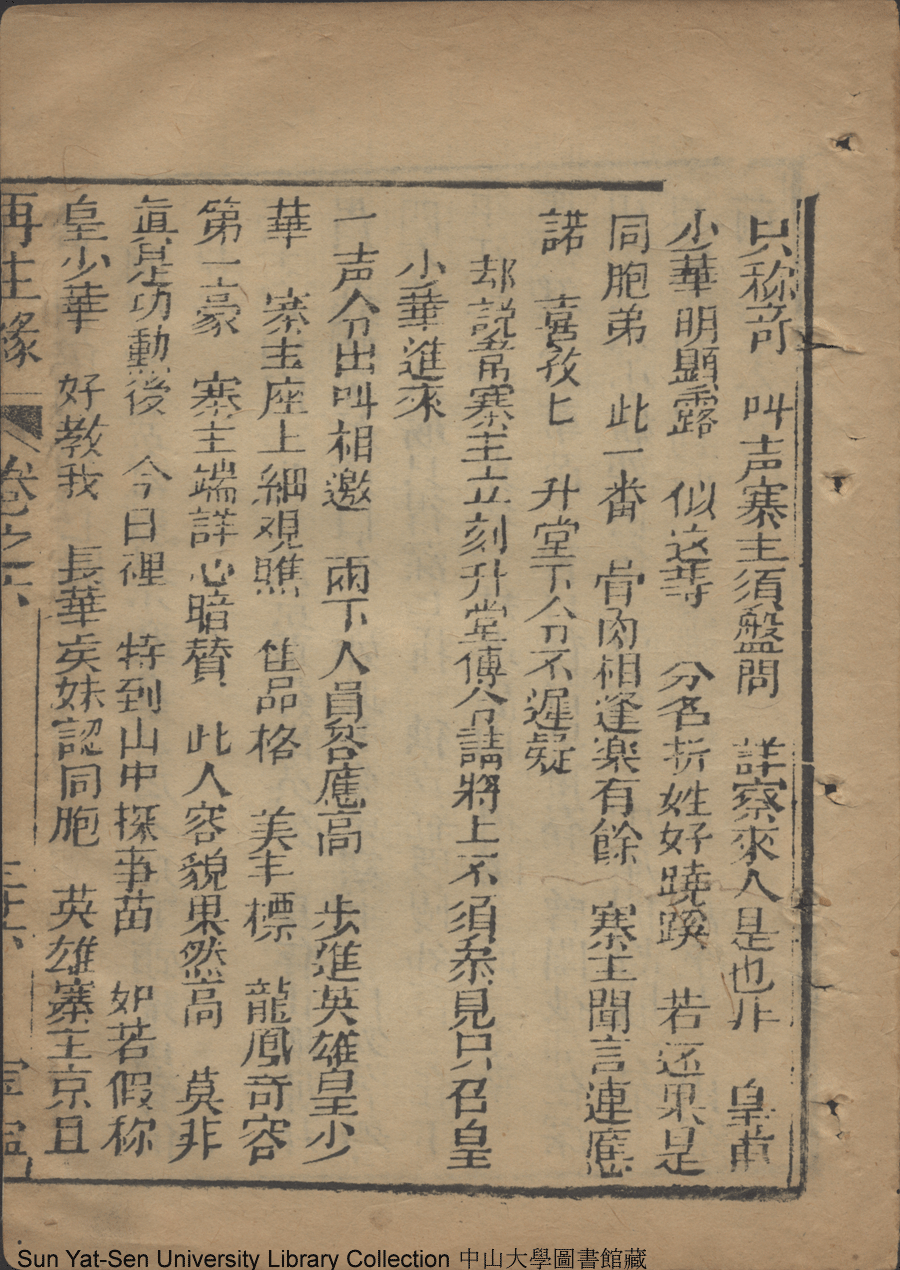 只称奇 叫声寨主須盤問 詳察來人是也非 皇甫
少華明顯露 似这等 分名折姓好蹺蹊 若还果是
同胞弟 此一番 骨肉相逢楽有餘 寨主聞言連應
諾 喜孜匕 升堂下令不遲疑
却説當寨主立刻升堂傳令請將上不須叅見只召皇
少華進來
一声令出叫相邀 兩下人員答應高 步進英雄皇少
華 寨主座上細观瞧 隹品格 美丰標 龍鳳奇容
第一豪 寨主端詳心暗賛 此人容貌果然高 莫非
真是功動後 今日裡 特到山中探事苗 如若假称
皇少華 好教我 長華矦妹認同胞 英雄寨主京且
再生緣 卷之六